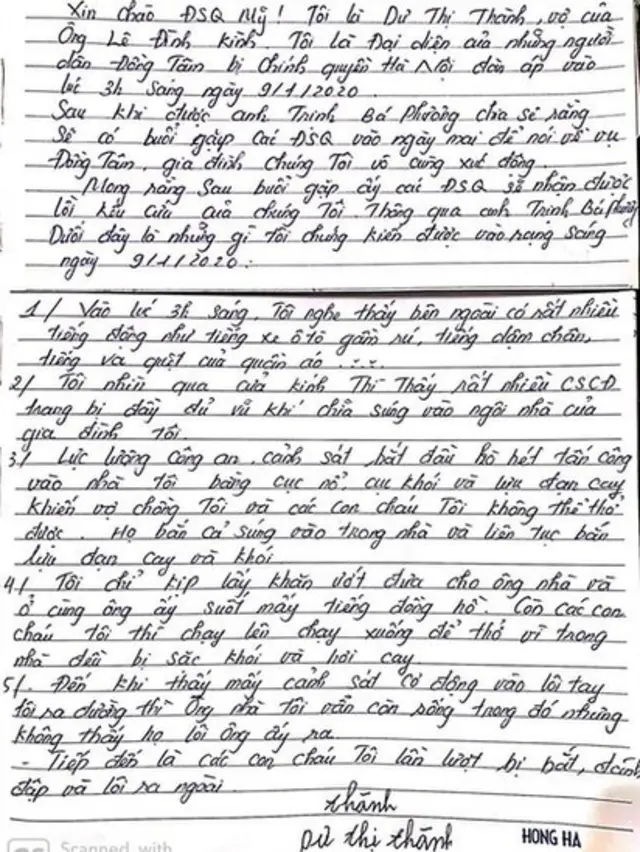 Xin chào ĐSQ Mỹ! Tôi là Dư Thị Thành, vợ của
Ông Lê Đình Kình Tôi là Đại diện của những người
dân Đồng Tâm bị Chính quyền Hà Nội đàn áp vào
lúc 3h sáng ngày 9/1/2020
Sau khi được anh Trịnh Bá Phương chia sẻ rằng
Sẽ có buổi gặp các ĐSQ vào ngày mai để nói về vụ
Đồng Tâm, gia đình chúng Tôi vô cùng xúc động.
Mong rằng Sau buổi gặp ấy các ĐSQ sẽ nhận được
lời kêu cứu của chúng Tôi. Thông qua anh Trịnh Bá Phương
Dưới đây là những gì tôi chứng kiến được vào rạng sáng
ngày 9/1/2020:
1/ Vào lúc 3h sáng, Tôi nghe thấy bên ngoài có rất nhiều
tiếng động như tiếng xe ô tô gầm rú, tiếng dậm chân,
tiếng va quệt của quần áo .....
2/ Tôi nhìn qua cửa kính Thì Thấy rất nhiều CSCĐ
trang bị đầy đủ vũ khí chĩa súng vào ngôi nhà của
gia đình tôi.
3/ Lực lượng công an, cảnh sát bắt đầu hò hét tấn công
vào nhà tôi bằng cục nổ, cục khói và lựu đạn cay
khiến vợ chồng Tôi và các con cháu Tôi không thể thở
được. Họ bắn cả súng vào trong nhà và liên tục bắn
lựu đạn cay và khói
4/ Tôi chỉ kịp lấy khăn ướt đưa cho ông nhà và
ở cùng ông ấy suốt mấy tiếng đồng hồ. Còn các con
cháu tôi thì chạy lên chạy xuống để thở vì trong
nhà đều bị sặc khói và hơi cay.
5/. Đến khi thấy mấy cảnh sát cơ động vào lôi tay
tôi ra đường thì Ông nhà Tôi vẫn còn sống trong đó nhưng
không thấy họ lôi ông ấy ra.
- Tiếp đến là các con cháu Tôi lần lượt bị bắt, đánh
đập và lôi ra ngoài.
thành
Dư thị thành
HONG HA
Scanned with